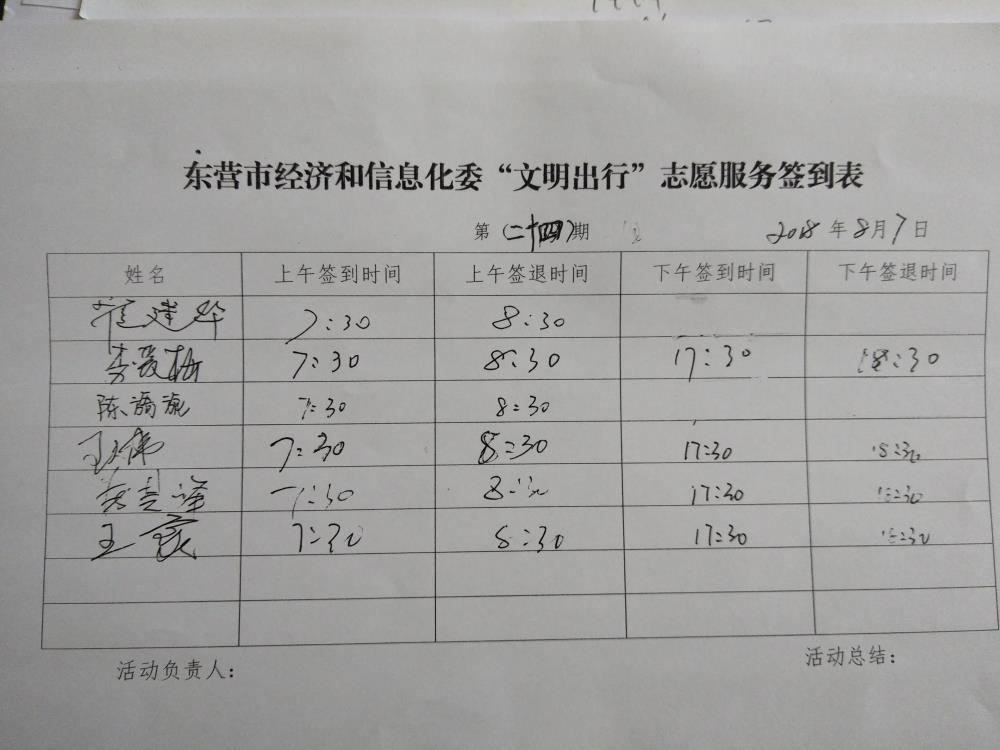 东营市经济和信息化委“文明出行”志愿服务签到表
第(二十四)期 2018年8月7日
姓名 上午签到时间 上午签退时间 下午签到时间 下午签退时间
崔建华 7:30 8:30
李爱梅 7:30 8:30 17:30 18:30
陈 7:30 8:30
王伟 7:30 8:30 17:30 18:30
7:30 8:30 17:30 18:30
王 7:30 8:30 17:30 18:30
活动负责人: 活动总结: